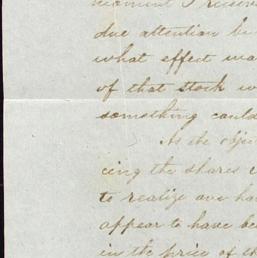 moment I receive
due attention be
what effect ma
of that stock w
something could
As the obje
cing the shares
to realize ou ha
appear to have be
in the price of th